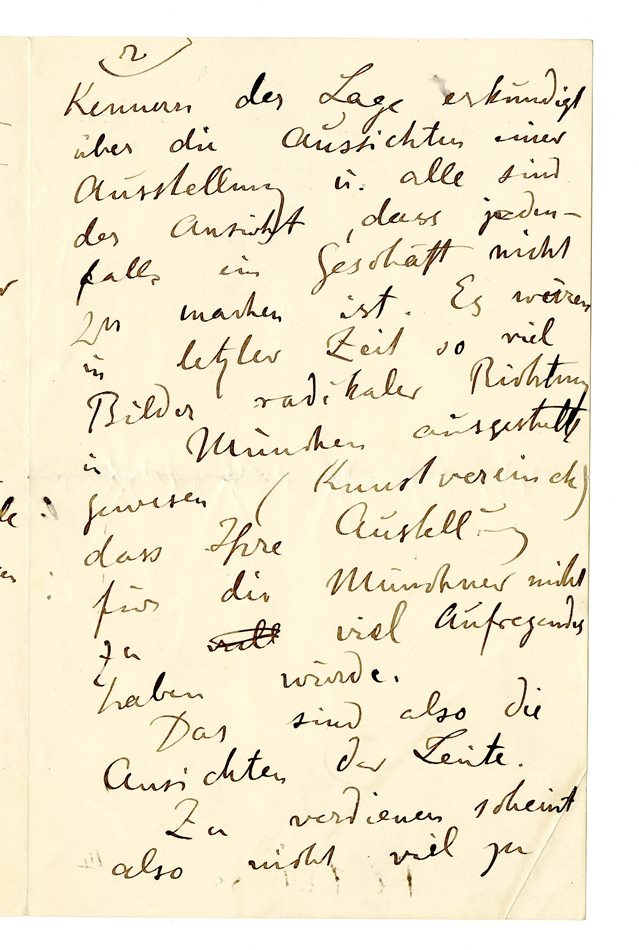 2)
Kennern der Lage erkundigt
über die Aussichten einer
Ausstellung u. alle sind
der Ansicht, dass jeden-
falls ein Geschäft nicht
zu machen ist. Es wären
in letzter Zeit so viel
Bilder radikaler Richtung
in München ausgestellt
gewesen (Kunstverein etc)
dass Ihre Austellung
für die Münchner nicht
zu viel Aufregendes
haben würde.
Das sind also die
Ansichten der Leute.
Zu verdienen scheint
also nicht viel zu